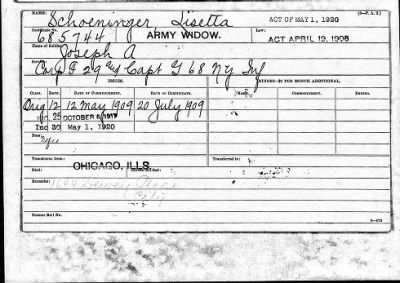 NAME: Schoeninger, Lisetta
ACT OF MAY 1, 1920
Certificate No. 685744 ARMY WIDOW. Law: ACT APRIL 19, 1908
Name of Soldier: Joseph A
Service: Corp F 29 & Capt G 68 N.Y. Inf
ISSUES.
CLASS. RATE. DATE OF COMMENCEMENT. DATE OF CERTIFICATE.
COMMENCEMENT. ENDING.
Orig 12 12 May 1909 20 July 1909
25 OCTOBER 6, 1917
Inc 30 May 1, 1920
Transferred from: CHICAGO, ILLS. Transferred to:
Died:
Remarks:
City
Former Roll No.